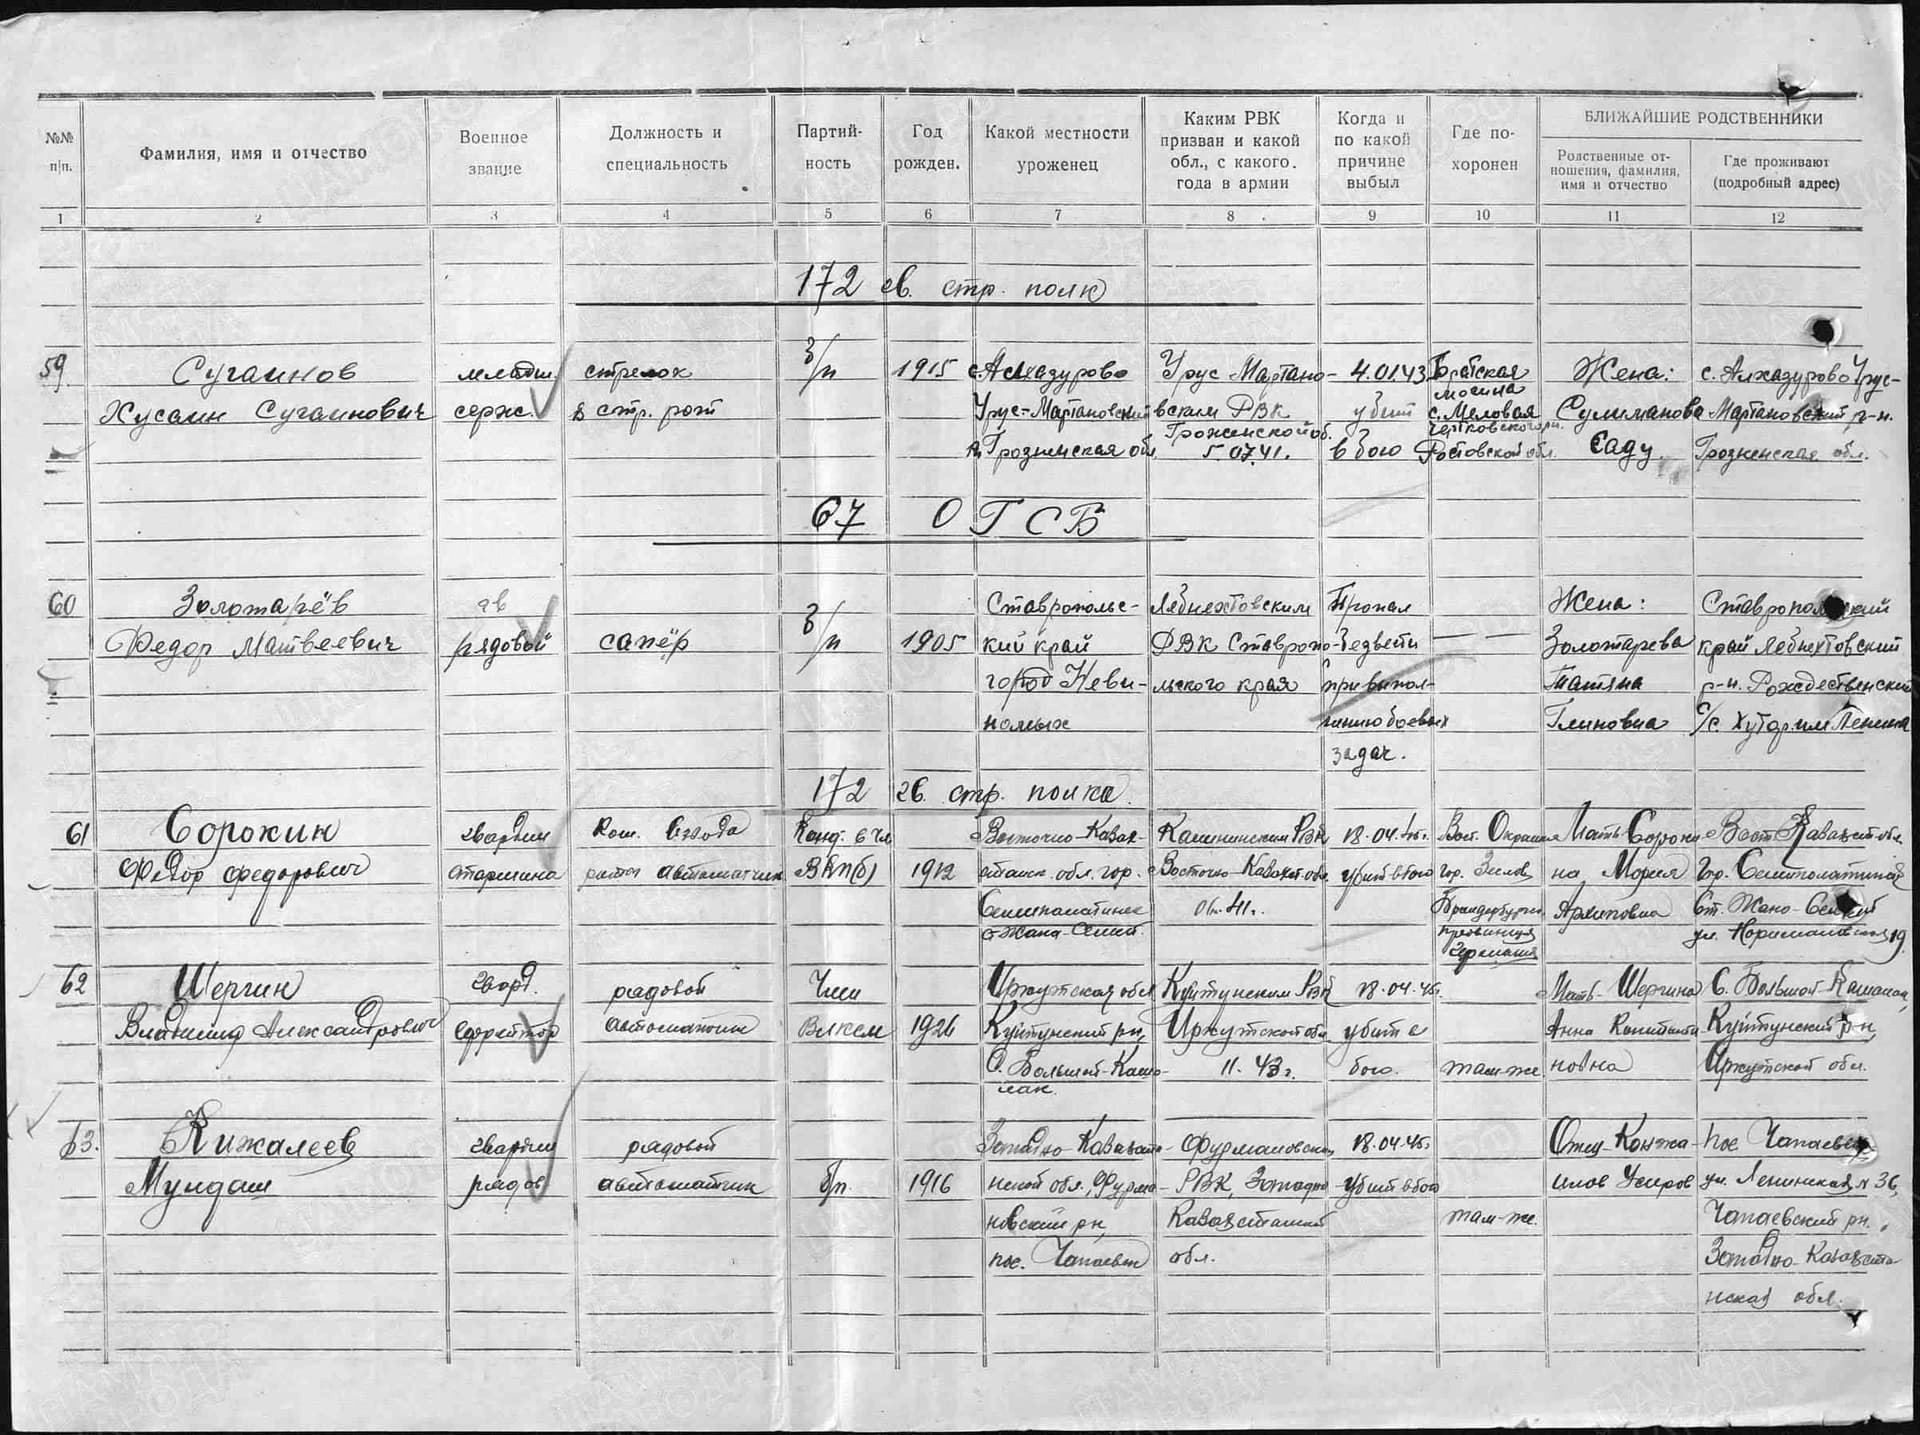 №№ п/п.
Фамилия, имя и отчество
Военное звание
Должность и специальность
Партий-ность
Год рожден.
Какой местности уроженец
Каким РВК призван и какой обл., с какого. года в армии
Когда и по какой причине выбыл
Где по-хоронен
БЛИЖАЙШИЕ РОДСТВЕННИКИ
Родственные от-ношения, фамилия, имя и отчество
Где проживают (подробный адрес)
1 2 3 4 5 6 7 8 9 10 11 12
172 гв. стр. полк
59. Сугаинов младш. стрелок б/п 1915 с. Алхазурово Урус Мартано- 4.01.43 Братская Жена: с. Алхазурово Урус-
могила
Хусаин Сугаинович серж. 8 стр. рот Урус-Мартановский вским РВК убит с. Меловая Сулиманова Мартановский р-н.
Грозненской об. Чертковского рн.
Грозненская обл. 5.07.41. в бою Ростовской обл. Саду. Грозненская обл.
67 ОГСБ
60 Золотарёв гв Ставрополь- Либкнехтовским Пропал Жена: Ставропольский
Федор Матвеевич рядовой сапёр б/п 1905 кий край РВК Ставропо- безвести Золотарева край Либкнехтовский
город Неви- льского края при выпол- Татяна р-н. Рождественский
номых нению боевых Глиновна с/с. Хутор им Ленина
задач.
172 гв. стр. полка.
61 Сорокин гвардии Ком. взвода Канд. в чл Восточно-Казах- Калининским РВК 18.04.45г. Вост. Окраина Мать-Сороки- Вост Казахст. обл.
Фёдор Федорович старшина роты автоматчик ВКП(б) 1912 станск. обл. гор. Восточно-Казахст. обл. убит в бою гор. Зилов, на, Мария Гор. Семипалатинск
Семипалатинск 41г. Бранденбургск. Архиповна ст. Жана-Семей
с Жана-Семей. провинция ул. 19.
Германия
62 Шергин гвард. рядовой Член Иркутская обл Куйтунским РВК 18.04.45г. Мать-Шергина С. Большой-Кашалак,
Владимир Александрович ефрейтор автоматчик ВЛКСМ 1926 Куйтунский рн, Иркутской обл убит в Анна Куйтунский рн,
С. Большой-Каша- 11.43г. бою. там-же новна Иркутской обл.
лак.
63. Кижалеев гвардии рядовой Западно-Казахста- Фурмановским 18.04.45г. Отец- пос Чапаевск
Мундаш рядов. автоматчик б/п. 1916 нской обл., Фурма- РВК, Западно убит в бою ул. Ленинская, № 36,
новский рн, Казахстанской там-же. Чапаевский рн.,
пос. Чапаевск обл. Западно-Казахста-
нская обл.